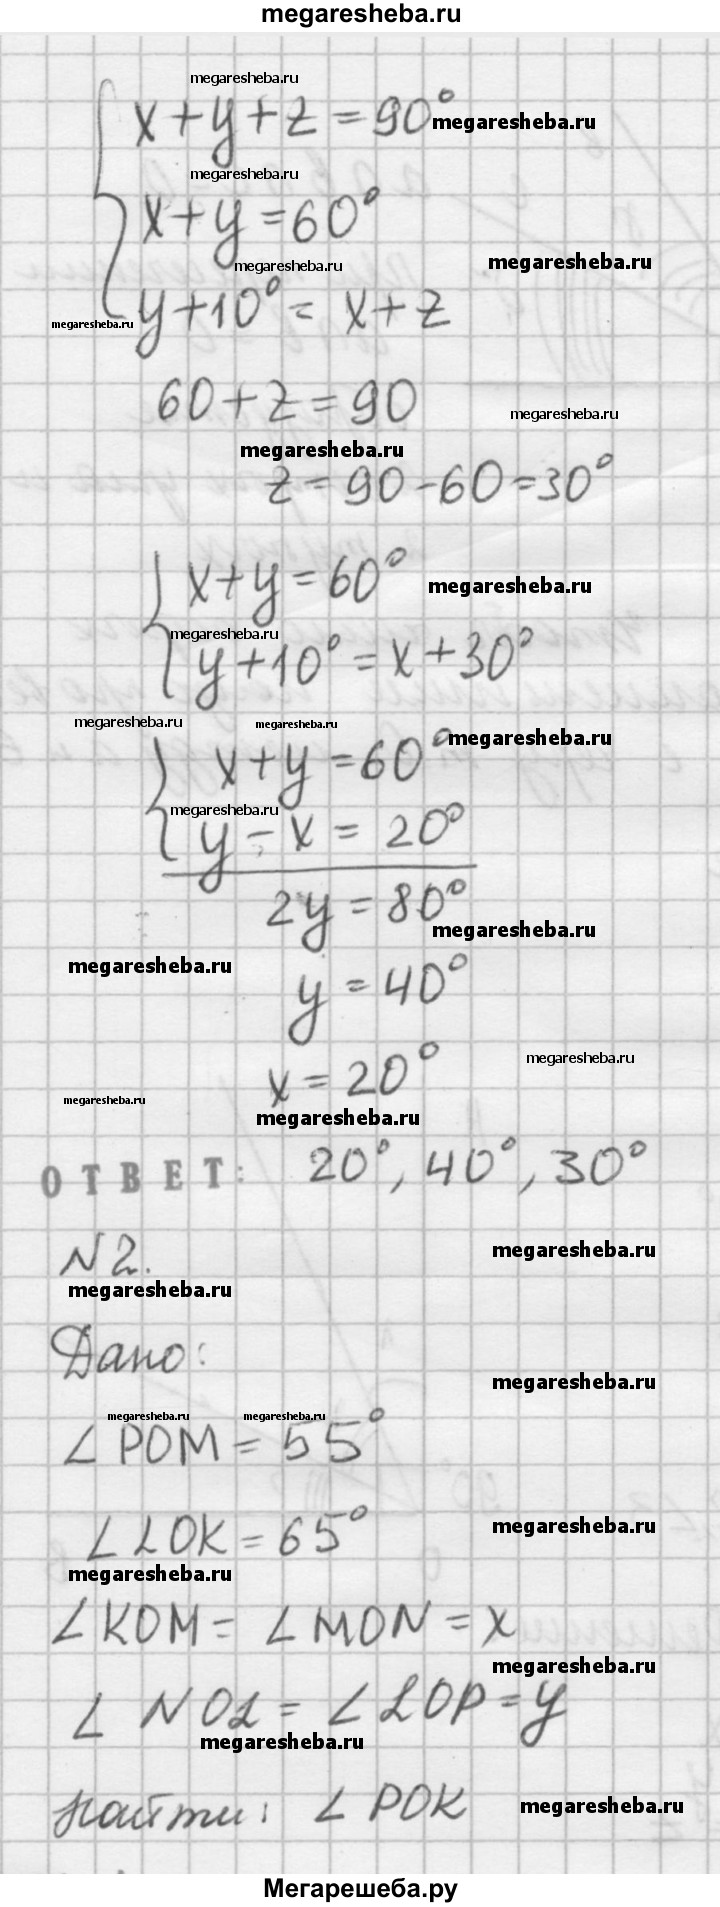 megaresheba.ru
megaresheba.ru
x+y+z=90°
megaresheba.ru
megaresheba.ru
x+y=60°
megaresheba.ru
megaresheba.ru
y+10°= x+z
megaresheba.ru
60+z=90
megaresheba.ru
megaresheba.ru
z=90-60=30°
x+y=60°
megaresheba.ru
megaresheba.ru
y+10°=x+30°
megaresheba.ru
megaresheba.ru
x+y=60°
megaresheba.ru
megaresheba.ru
y-x=20°
2y=80°
megaresheba.ru
megaresheba.ru
y=40°
megaresheba.ru
x=20°
megaresheba.ru
megaresheba.ru
ОТВЕТ: 20°, 40°, 30°
N2.
megaresheba.ru
megaresheba.ru
Дано:
megaresheba.ru
megaresheba.ru
megaresheba.ru
∠POM=55°
∠LOK=65°
megaresheba.ru
megaresheba.ru
∠KOM= ∠MON=x
megaresheba.ru
∠NOL= ∠LOP=y
megaresheba.ru
Найти: ∠POK
megaresheba.ru
Мегарешеба.ру